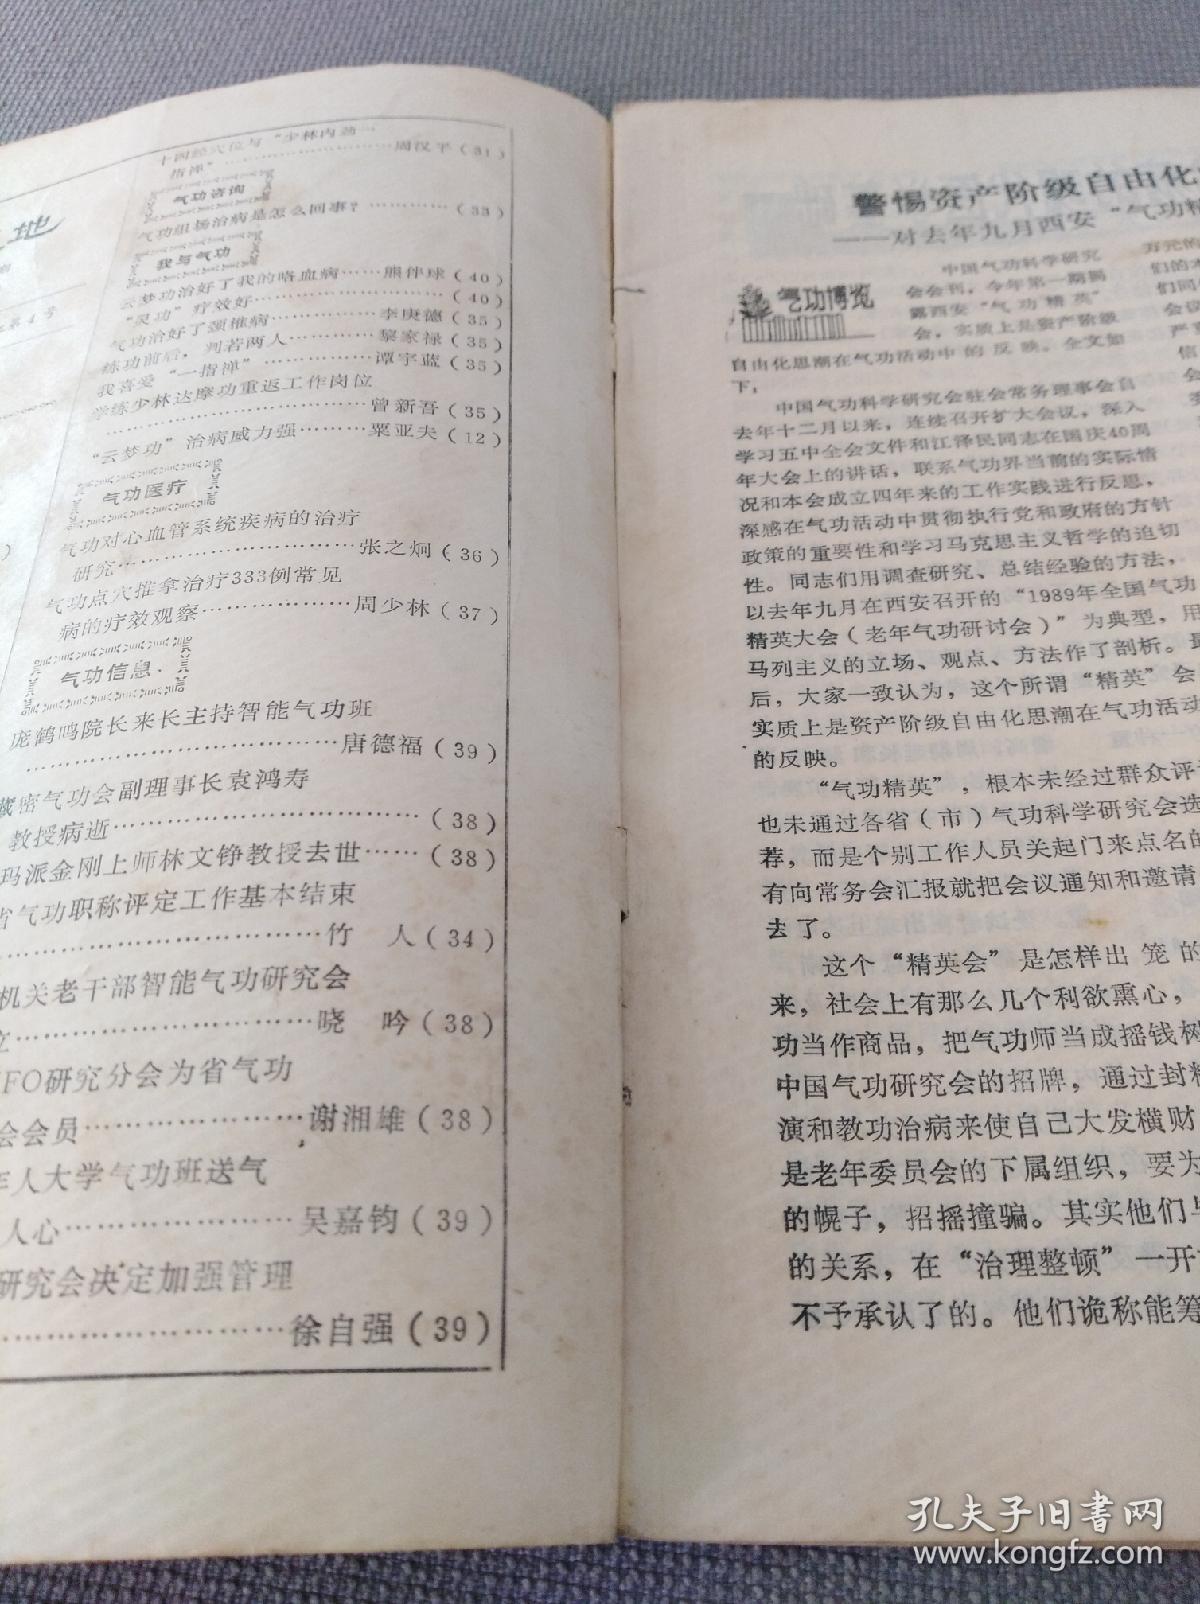 地
第4号
十四经穴位与“少林内劲一
指禅”……周汉平(31)
气功咨询
气功组场治病是怎么回事？…………(33)
我与气功
云梦功治好了我的咯血病……熊伴球(40)
“灵功”疗效好……………………(40)
气功治好了颈椎病…………李庚德(35)
练功前后，判若两人………黎家禄(35)
我喜爱“一指禅”…………谭宇蓝(35)
学练少林达摩功重返工作岗位
……………………曾新吾(35)
“云梦功”治病威力强………粟亚夫(12)
气功医疗
气功对心血管系统疾病的治疗
研究……………………张之炯(36)
气功点穴推拿治疗333例常见
病的疗效观察……………周少林(37)
气功信息
庞鹤鸣院长来长主持智能气功班
……………………唐德福(39)
藏密气功会副理事长袁鸿寿
教授病逝……………………………(38)
玛派金刚上师林文铮教授去世……(38)
省气功职称评定工作基本结束
……………………………竹　人(34)
机关老干部智能气功研究会
立……………………………晓　吟(38)
FO研究分会为省气功
会会员……………………谢湘雄(38)
年人大学气功班送气
人心……………………吴嘉钧(39)
研究会决定加强管理
……………………徐自强(39)
警惕资产阶级自由化
——对去年九月西安“气功精
气功博览
中国气功科学研究
会会刊，今年第一期揭
露西安“气功精英”
会，实质上是资产阶级
自由化思潮在气功活动中的反映。全文如
下，
中国气功科学研究会驻会常务理事会自
去年十二月以来，连续召开扩大会议，深入
学习五中全会文件和江泽民同志在国庆40周
年大会上的讲话，联系气功界当前的实际情
况和本会成立四年来的工作实践进行反思，
深感在气功活动中贯彻执行党和政府的方针
政策的重要性和学习马克思主义哲学的迫切
性。同志们用调查研究、总结经验的方法，
以去年九月在西安召开的“1989年全国气功
精英大会(老年气功研讨会)”为典型，用
马列主义的立场、观点、方法作了剖析。最
后，大家一致认为，这个所谓“精英”会
实质上是资产阶级自由化思潮在气功活动
的反映。
“气功精英”，根本未经过群众评
也未通过各省(市)气功科学研究会选
荐，而是个别工作人员关起门来点名的
有向常务会汇报就把会议通知和邀请
去了。
这个“精英会”是怎样出笼的
来，社会上有那么几个利欲熏心，
功当作商品，把气功师当成摇钱树
中国气功研究会的招牌，通过封精
演和教功治病来使自己大发横财
是老年委员会的下属组织，要为
的幌子，招摇撞骗。其实他们与
的关系，在“治理整顿”一开
不予承认了的。他们诡称能筹
万元的
们的
们同
会议
严
信
会
孔夫子旧书网
www.kongfz.com